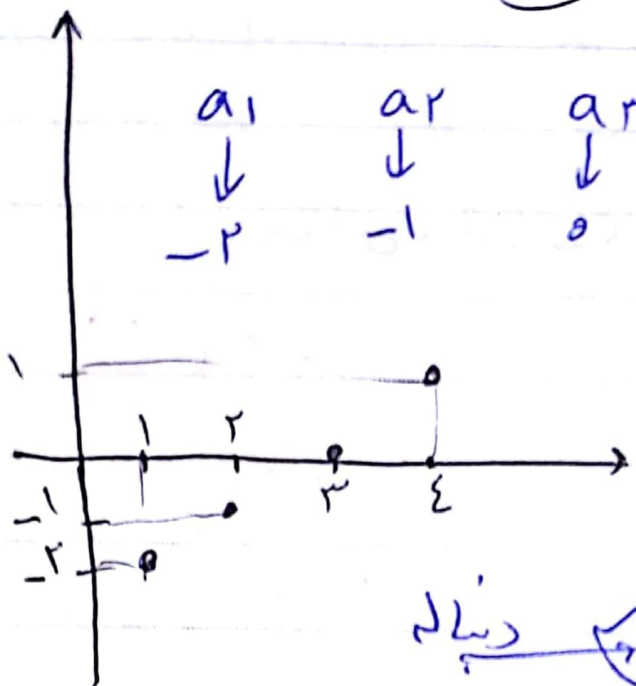 a۱ a۲ a۳
↓ ↓ ↓
-۲ -۱ ۰
۱
۱ ۲
۳ ٤
-۱
-۲
دنباله